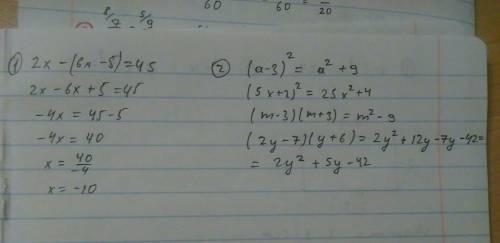 8/7 - 5/9
60 60 = /20
① 2x - (6x - 5) = 45
2x - 6x + 5 = 45
-4x = 45 - 5
-4x = 40
x = 40/-4
x = -10
② (a-3)² = a² + 9
(5x+2)² = 25x² + 4
(m-3)(m+3) = m² - 9
(2y-7)(y+6) = 2y² + 12y - 7y - 42 =
= 2y² + 5y - 42